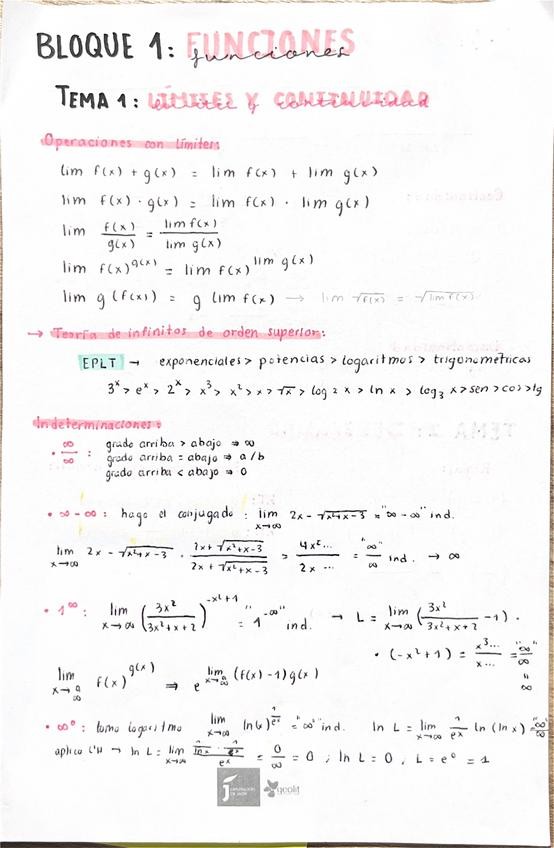 BLOQUE 1: FUNCIONES
funciones
TEMA 1: LÍMITES Y CONTINUIDAD
límites y continuidad
Operaciones con límites:
lim f(x) + g(x) = lim f(x) + lim g(x)
lim f(x) · g(x) = lim f(x) · lim g(x)
lim f(x)/g(x) = lim f(x)/lim g(x)
lim f(x)^g(x) = lim f(x)^lim g(x)
lim g(f(x)) = g lim f(x) → lim √f(x) = √lim f(x)
→ Teoría de infinitos de orden superior:
EPLT → exponenciales > potencias > logaritmos > trigonométricas
3^x > e^x > 2^x > x^3 > x^2 > x > √x > log 2 x > ln x > log3 x > sen > cos > tg
Indeterminaciones:
· ∞/∞ : grado arriba > abajo ⇒ ∞
grado arriba = abajo ⇒ a/b
grado arriba < abajo ⇒ 0
· ∞-∞ : hago el conjugado : lim x→∞ 2x - √x²+x-3 = "∞-∞" ind.
lim x→∞ 2x - √x²+x-3 · (2x + √x²+x-3)/(2x + √x²+x-3) = 4x².../2x ... = "∞"/∞ ind. → ∞
· 1^∞ : lim x→∞ (3x²/(3x²+x+2))^(-x²+1) = 1^"-∞" ind. → L = lim x→∞ (3x²/(3x²+x+2) - 1) ·
· (-x²+1) = x³.../x... = "∞"/∞
lim x→a ∞ f(x)^g(x) ⇒ e^lim x→a ∞ (f(x)-1)g(x)
"∞
· ∞^0 : tomo logaritmo lim x→∞ ln(x)^(1/e^x) = "∞^0" ind. ln L = lim x→∞ 1/e^x ln(ln x) = "∞"/∞
aplico L'H → ln L = lim x→∞ = 0/∞ = 0 ; ln L = 0, L = e^0 = 1
DIPUTACIÓN DE JAÉN
geolit